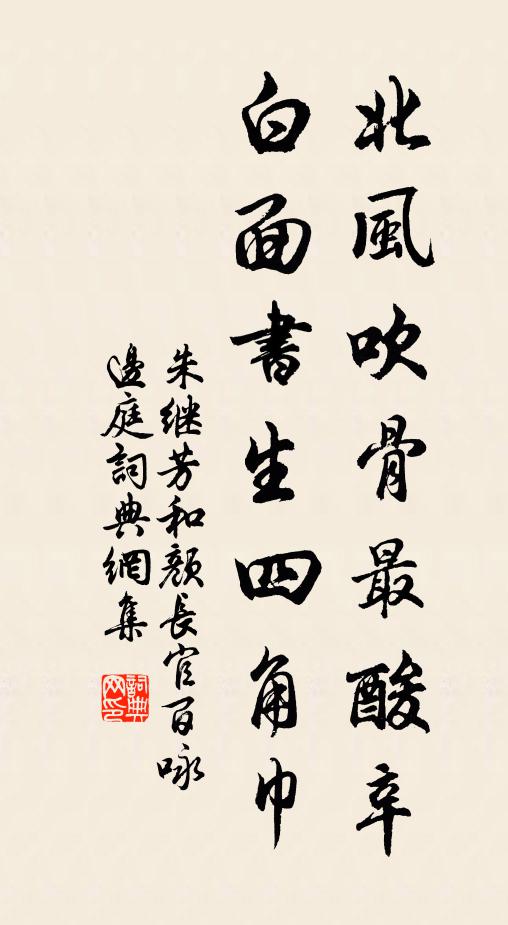 北風吹骨最酸辛
白面書生四角巾
朱继芳和顏長官百咏
邊庭詞典網集
詞典
网印